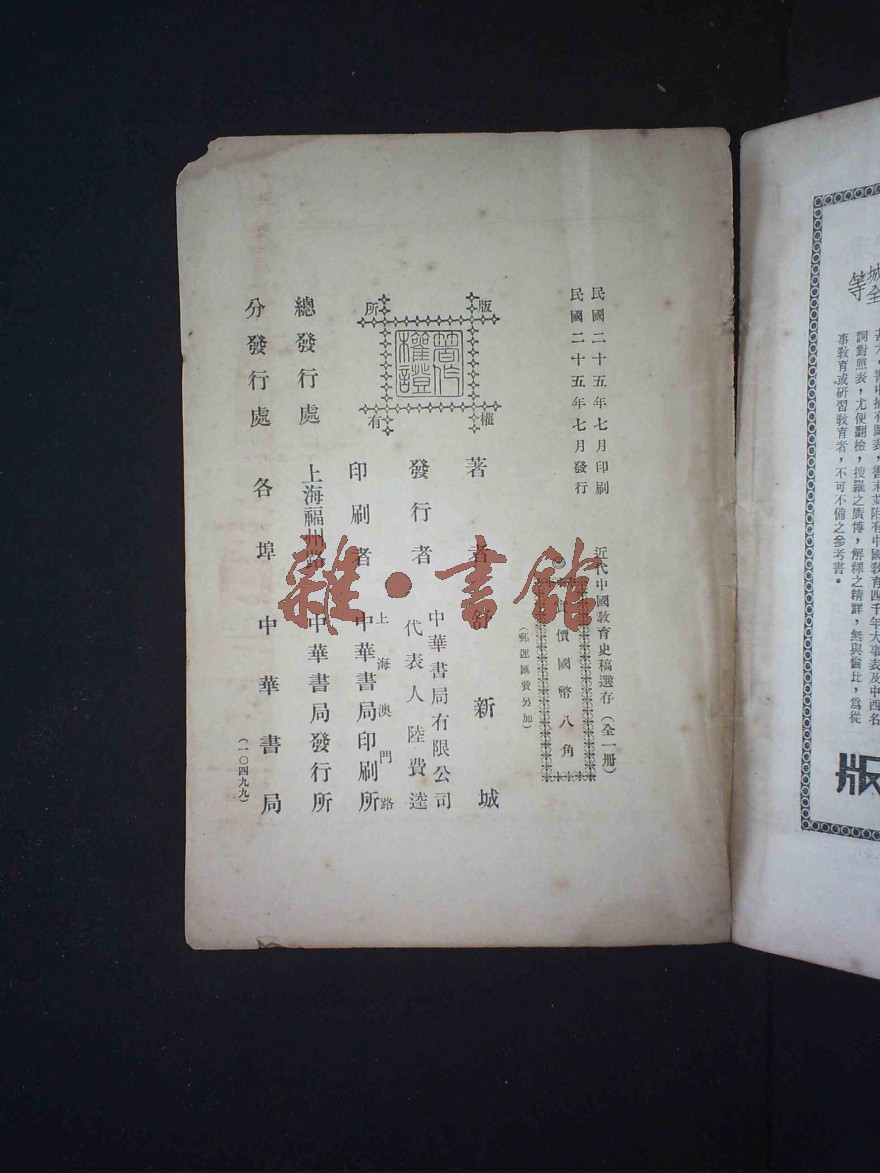 書中插有圖表，書末並附有中國教育四千年大事表及中西名
詞對照表，尤便翻檢，搜羅之廣博，解釋之精詳，無與倫比，爲從
事教育或研習教育者，不可不備之參考書。
等
版
民國二十五年七月印刷
民國二十五年七月發行
近代中國教育史稿選存（全一冊）
價國幣八角
（郵運匯費另加）
版權所有
著作權證
著者 新城
發行者 中華書局有限公司
代表人 陸費逵
印刷者 上海澳門路
中華書局印刷所
總發行處 上海福州路 中華書局發行所
分發行處 各埠中華書局
（一〇四九九）
雜·書館